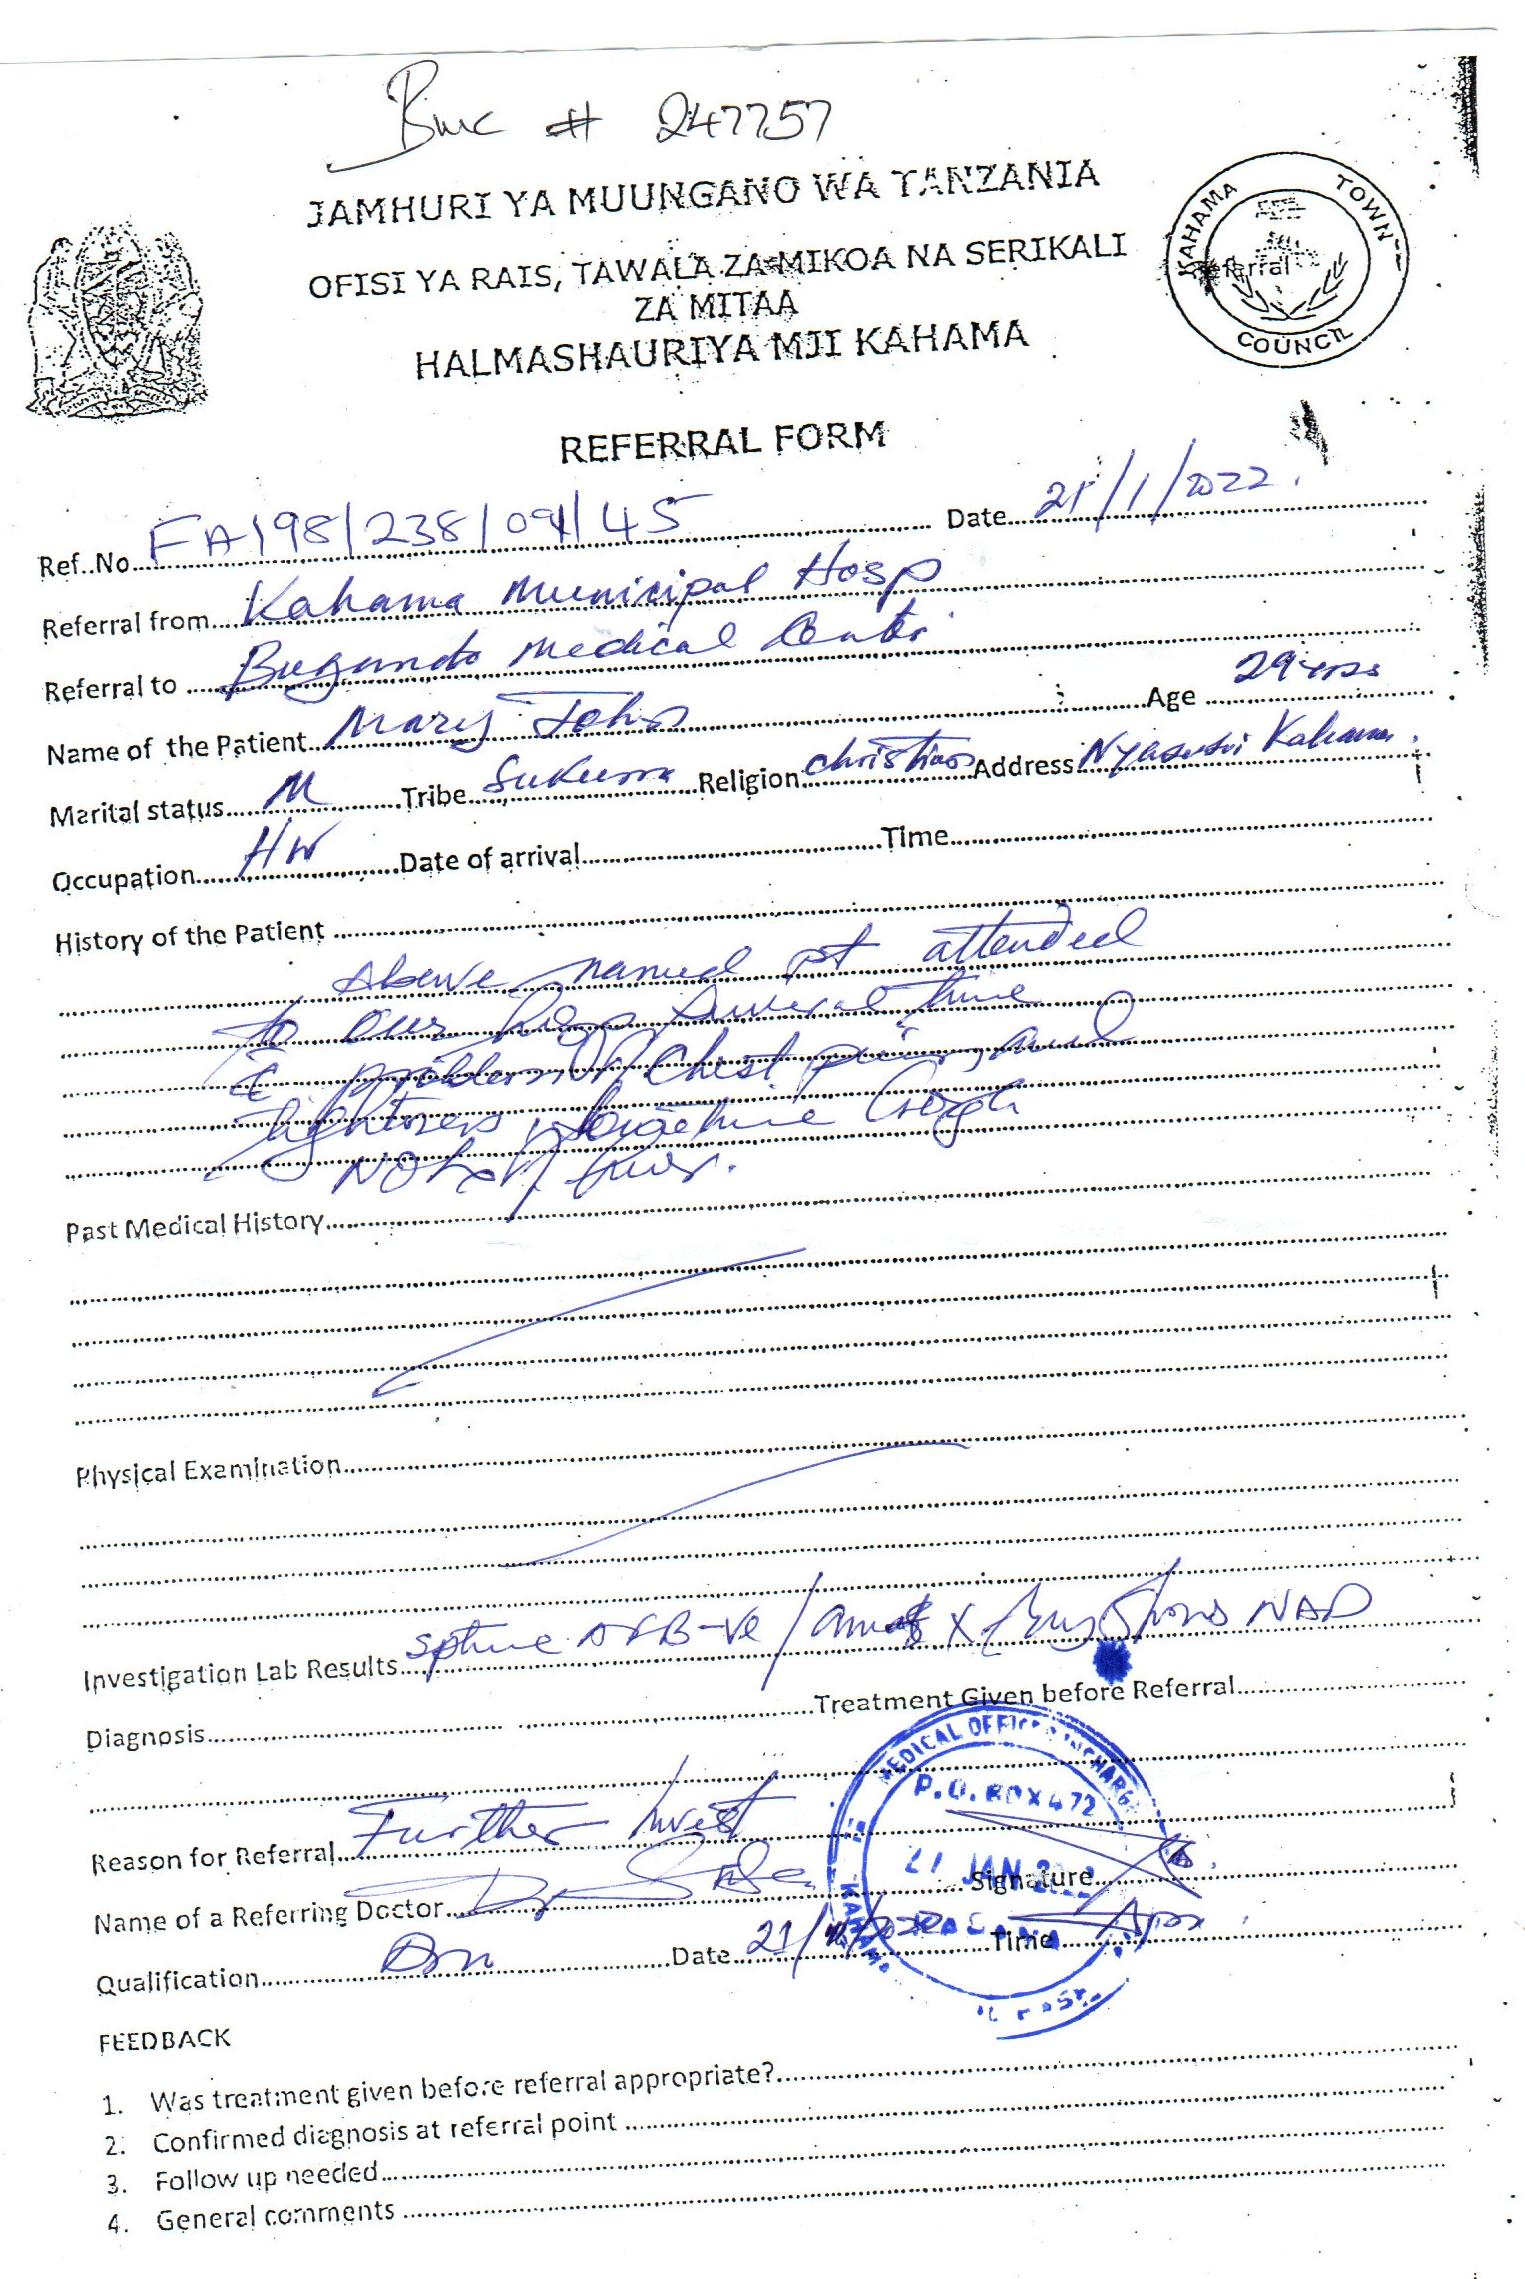 Bmc # 247757
JAMHURI YA MUUNGANO WA TANZANIA
OFISI YA RAIS, TAWALA ZA MIKOA NA SERIKALI
ZA MITAA
HALMASHAURIYA MJI KAHAMA
KAHAMA TOWN COUNCIL
Referral
REFERRAL FORM
Ref..No FA198/238/09/45 Date 21/1/2022.
Referral from Kahama Municipal Hosp
Referral to Bugando Medical Centr
Name of the Patient Mary John Age 29 yrs
Marital status M Tribe Sukuma Religion Christian Address Kahama
Occupation HW Date of arrival Time
History of the Patient
Above named pt attended
to our Hosp several time
c problem of chest pain, and
tightness, sometime Cough
NO Hx of fever.
Past Medical History
Physical Examination
Investigation Lab Results AFB-ve / X NAD
Diagnosis Treatment Given before Referral
Reason for Referral Further Invest
Name of a Referring Doctor Dr Signature
Qualification Date 21/ Time
MEDICAL OFFICER INCHARGE
P.O. BOX 472
21 JAN 2022
KAHAMA
FEEDBACK
1. Was treatment given before referral appropriate?
2. Confirmed diagnosis at referral point
3. Follow up needed
4. General comments